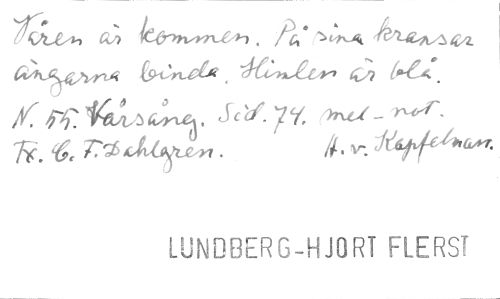 Våren är kommen. På sina kransar
ängarna binda. Himlen är blå.
N. 55. Vårsång. Sid. 74. mel-not.
Tx. C. F. Dahlgren. H. v. Kapfelman.
LUNDBERG-HJORT FLERST